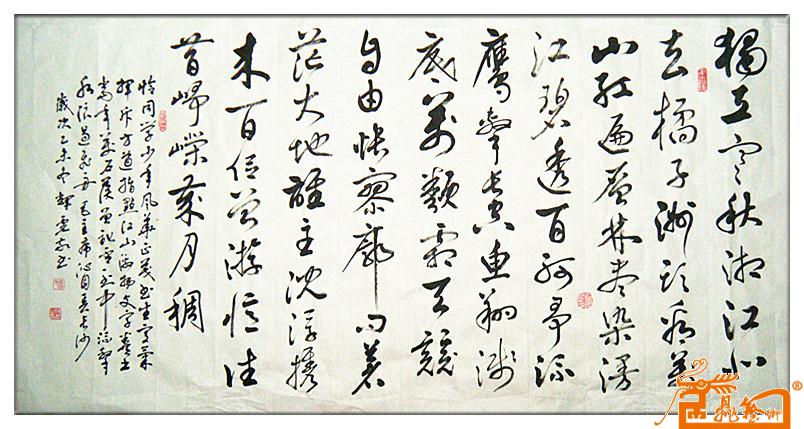 獨立寒秋湘江北
去橘子洲頭看萬
山紅遍層林盡染漫
江碧透百舸爭流
鷹擊長空魚翔淺
底萬類霜天競
自由悵寥廓問蒼
茫大地誰主沈浮攜
來百侶曾游憶往
昔崢嶸歲月稠
恰同学少年風華正茂書生意氣
揮斥方遒指點江山激揚文字糞土
當年萬户侯曾記否到中流擊
水浪遏飛舟毛主席沁園春長沙
歲次乙未冬書